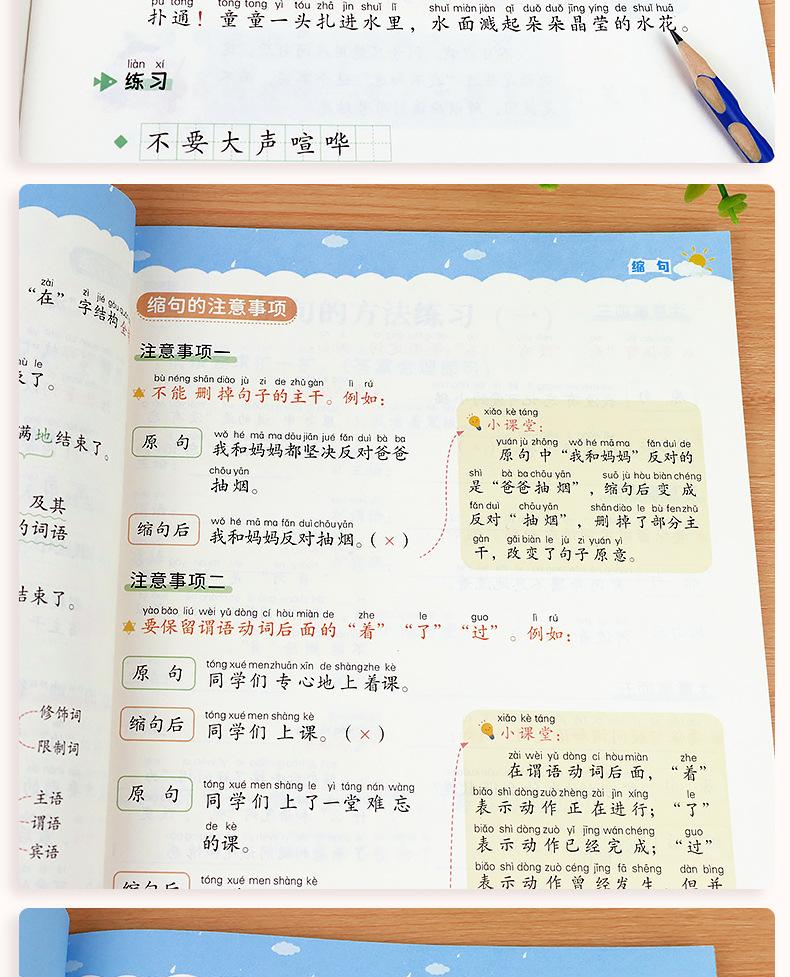 pū tōng tóng tong yì tóu zhā jìn shuǐ lǐ shuǐ miàn jiàn qǐ duǒ duǒ jīng yíng de shuǐ huā
扑通！童童一头扎进水里，水面溅起朵朵晶莹的水花。
liàn xí
练习
不要大声喧哗
缩句
zài zì jié gòu
“在”字结构
了。
地结束了。
及其
的词语
结束了。
修饰词
限制词
主语
谓语
宾语
缩句的注意事项
注意事项一
bù néng shān diào jù zi de zhǔ gàn lì rú
不能删掉句子的主干。例如：
wǒ hé mā ma dōu jiān jué fǎn duì bà ba
原句 我和妈妈都坚决反对爸爸
chōu yān
抽烟。
wǒ hé mā ma fǎn duì chōu yān
缩句后 我和妈妈反对抽烟。（×）
xiǎo kè táng
小课堂：
yuán jù zhōng wǒ hé mā ma fǎn duì de
原句中“我和妈妈”反对的
shì bà ba chōu yān suō jù hòu biàn chéng
是“爸爸抽烟”，缩句后变成
fǎn duì chōu yān shān diào le bù fen zhǔ
反对“抽烟”，删掉了部分主
gàn gǎi biàn le jù zi yuán yì
干，改变了句子原意。
注意事项二
yào bǎo liú wèi yǔ dòng cí hòu miàn de zhe le guo lì rú
要保留谓语动词后面的“着”“了”“过”。例如：
tóng xué men zhuān xīn de shàng zhe kè
原句 同学们专心地上着课。
tóng xué men shàng kè
缩句后 同学们上课。（×）
tóng xué men shàng le yì táng nán wàng
原句 同学们上了一堂难忘
de kè
的课。
tóng xué men shàng kè
缩句后
xiǎo kè táng
小课堂：
zài wèi yǔ dòng cí hòu miàn zhe
在谓语动词后面，“着”
biǎo shì dòng zuò zhèng zài jìn xíng le
表示动作正在进行；“了”
biǎo shì dòng zuò yǐ jīng wán chéng guo
表示动作已经完成；“过”
biǎo shì dòng zuò céng jīng fā shēng dàn bìng
表示动作曾经发生，但并